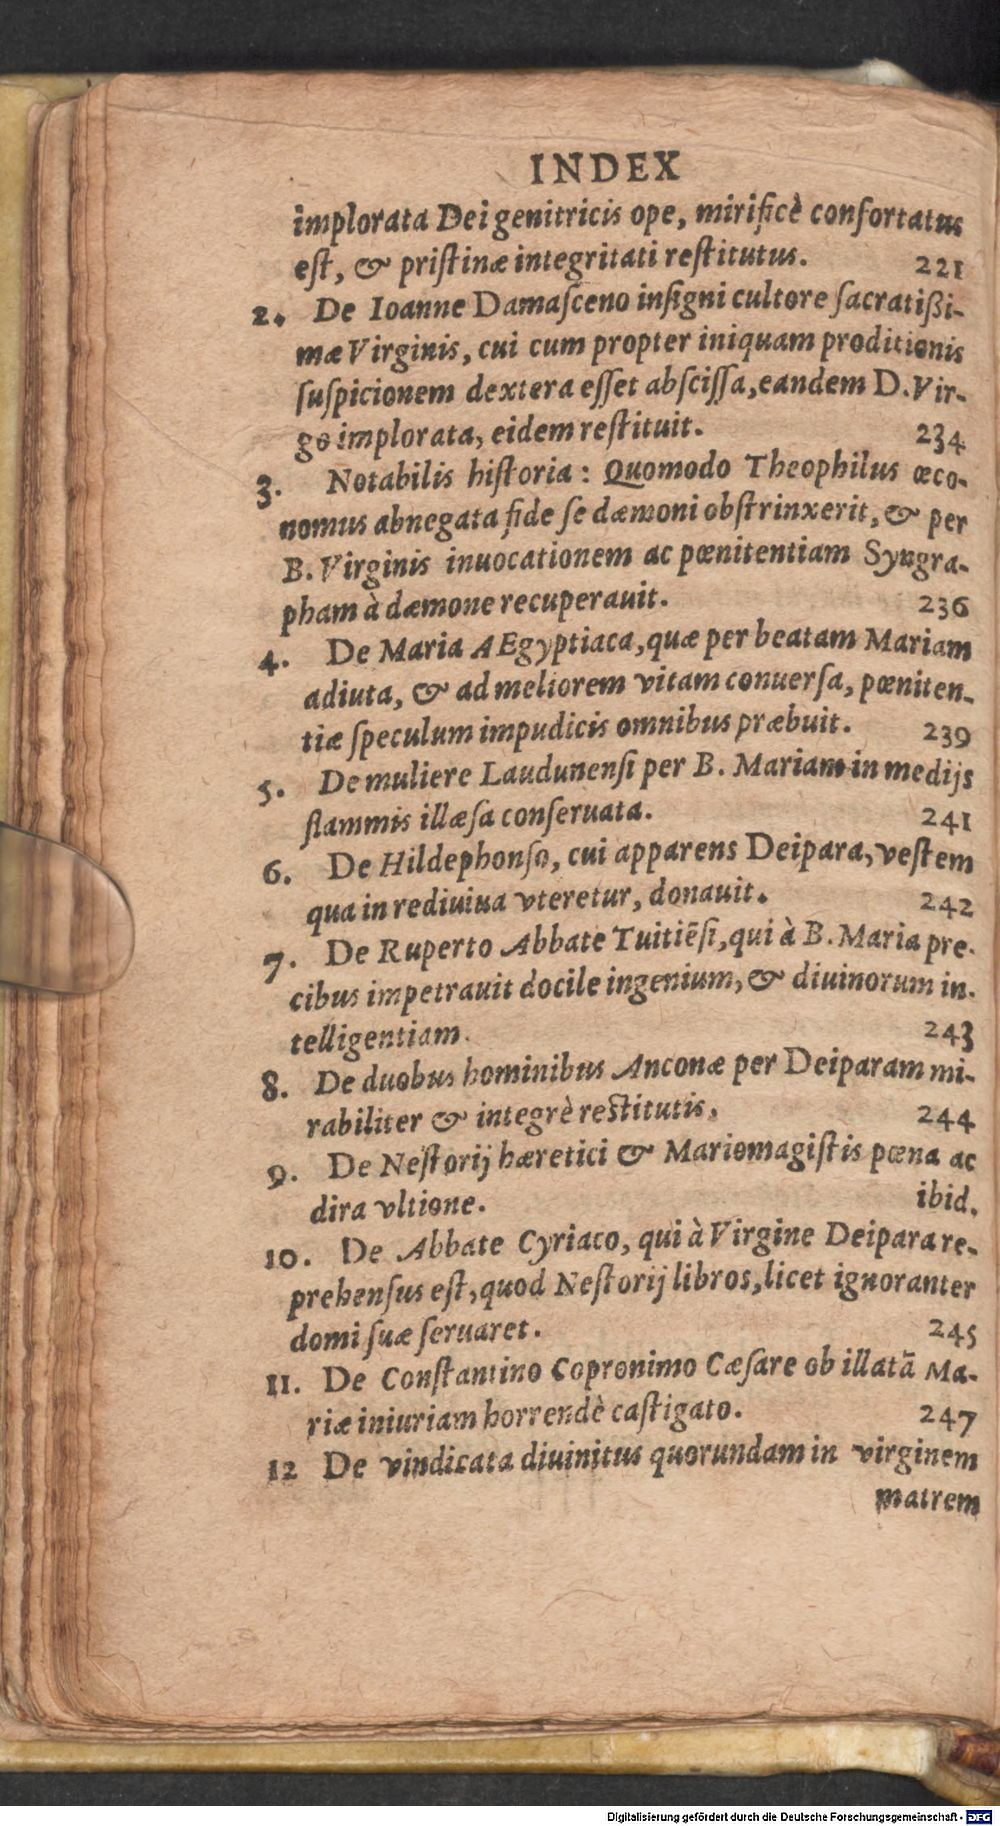 INDEX
implorata Dei genitricis ope, mirificè confortatus
est, & pristinæ integritati restitutus. 221
2. De Ioanne Damasceno insigni cultore sacratißi-
mæ Virginis, cui cum propter iniquam proditionis
suspicionem dextera esset abscissa, eandem D. Vir-
go implorata, eidem restituit. 234
3. Notabilis historia: Quomodo Theophilus œco-
nomus abnegata fide se dæmoni obstrinxerit, & per
B. Virginis inuocationem ac pœnitentiam Syngra-
pham à dæmone recuperauit. 236
4. De Maria AEgyptiaca, quæ per beatam Mariam
adiuta, & ad meliorem vitam conuersa, pœniten-
tiæ speculum impudicis omnibus præbuit. 239
5. De muliere Laudunensi per B. Mariam in medijs
flammis illæsa conseruata. 241
6. De Hildephonso, cui apparens Deipara, vestem
qua in rediuiua vteretur, donauit. 242
7. De Ruperto Abbate Tuitiēsi, qui à B. Maria pre-
cibus impetrauit docile ingenium, & diuinorum in-
telligentiam. 243
8. De duobus hominibus Anconæ per Deiparam mi-
rabiliter & integrè restitutis. 244
9. De Nestorij hæretici & Mariomagistis pœna ac
dira vltione. ibid.
10. De Abbate Cyriaco, qui à Virgine Deipara re-
prehensus est, quod Nestorij libros, licet ignoranter
domi suæ seruaret. 245
11. De Constantino Copronimo Cæsare ob illatā Ma-
riæ iniuriam horrendè castigato. 247
12 De vindicata diuinitus quorundam in virginem
matrem
Digitalisierung gefördert durch die Deutsche Forschungsgemeinschaft - DFG